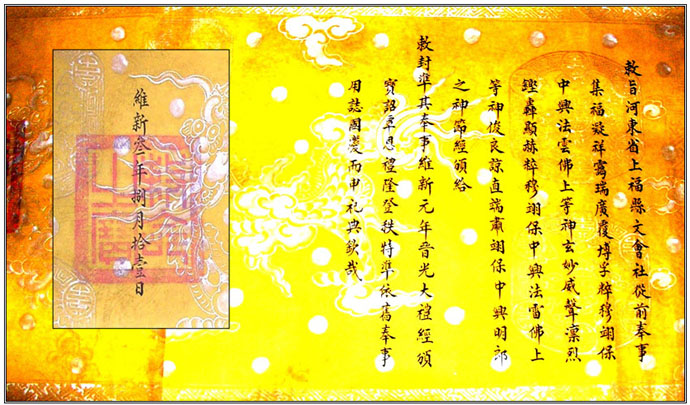 敕旨河東省上福縣文會社從前奉事
集福凝祥霱瑞廣覆愽孚粹穆翊保
中興法雲佛上等神玄妙威聲凛烈
轟轟顯赫粹穆翊保中興法雷佛上
等神俊良諒直端肅翊保中興明郎
之神節經頒給
敕封準其奉事維新元年晉光大禮經頒
寳詔覃恩禮隆登秩特準依舊奉事
用誌國慶而申礼典欽哉
維新叁年捌月拾壹日